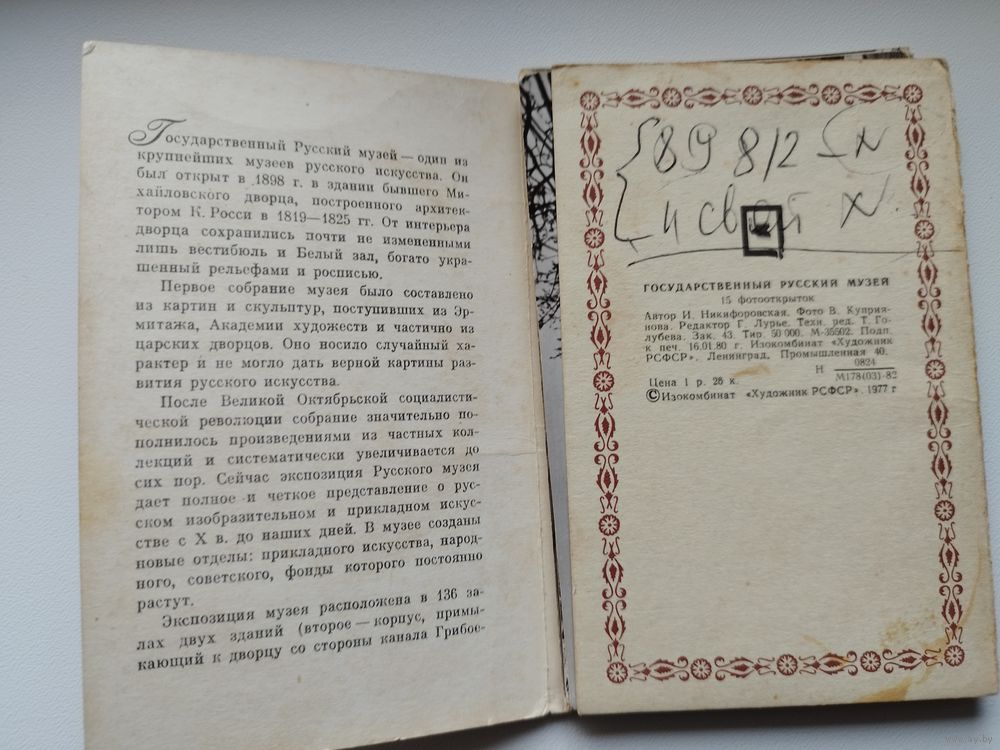 Государственный Русский музей — один из
крупнейших музеев русского искусства. Он
был открыт в 1898 г. в здании бывшего Ми-
хайловского дворца, построенного архитек-
тором К. Росси в 1819—1825 гг. От интерьера
дворца сохранились почти не измененными
лишь вестибюль и Белый зал, богато укра-
шенный рельефами и росписью.
Первое собрание музея было составлено
из картин и скульптур, поступивших из Эр-
митажа, Академии художеств и частично из
царских дворцов. Оно носило случайный ха-
рактер и не могло дать верной картины раз-
вития русского искусства.
После Великой Октябрьской социалисти-
ческой революции собрание значительно по-
полнилось произведениями из частных кол-
лекций и систематически увеличивается до
сих пор. Сейчас экспозиция Русского музея
дает полное и четкое представление о рус-
ском изобразительном и прикладном искус-
стве с X в. до наших дней. В музее созданы
новые отделы: прикладного искусства, народ-
ного, советского, фонды которого постоянно
растут.
Экспозиция музея расположена в 136 за-
лах двух зданий (второе — корпус, примы-
кающий к дворцу со стороны канала Грибое-
89 8/2
ГОСУДАРСТВЕННЫЙ РУССКИЙ МУЗЕЙ
15 фотооткрыток
Автор И. Никифоровская. Фото В. Куприя-
нова. Редактор Г. Лурье. Техн. ред. Т. Го-
лубева. Зак. 43. Тир. 50 000. М-35502. Подп.
к печ. 16.01.80 г. Изокомбинат «Художник
РСФСР». Ленинград, Промышленная 40.
Н 0824
М178(03)-82
Цена 1 р. 25 к.
©Изокомбинат «Художник РСФСР». 1977 г
www.ay.by